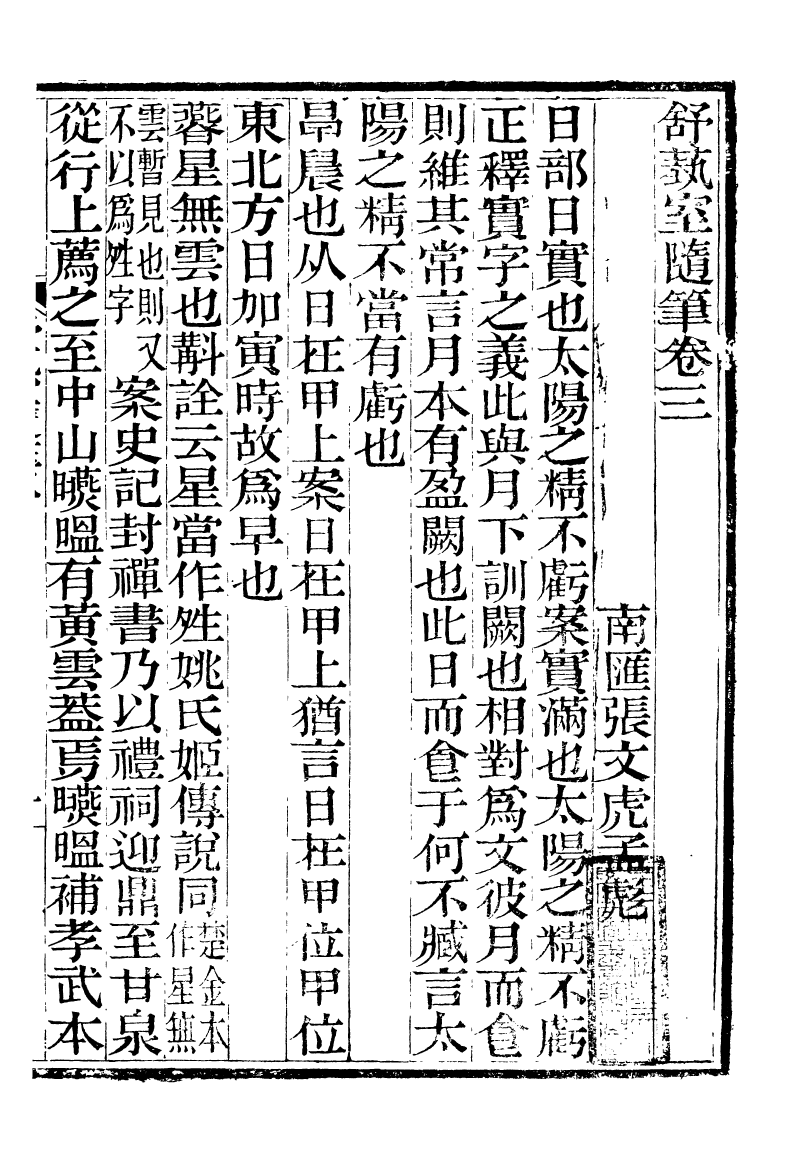 舒蓺室隨筆卷三
南匯張文虎孟彪
日部日實也太陽之精不虧案實滿也太陽之精不虧
正釋實字之義此與月下訓闕也相對爲文彼月而食
則維其常言月本有盈闕也此日而食于何不臧言太
陽之精不當有虧也
𣅔晨也从日在甲上案日在甲上猶言日在甲位甲位
東北方日加寅時故爲早也
㬗星無雲也斠詮云星當作姓姚氏姬傳說同楚金本
作星無
雲暫見也則又
不以爲姓字
案史記封禪書乃以禮祠迎鼎至甘泉
從行上薦之至中山曣㬈有黃雲葢焉曣㬈補孝武本